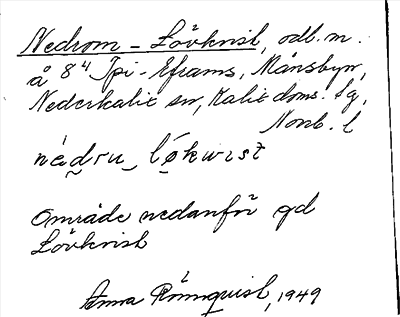 Nedrom - Lövkvist, odl. m.
å 8⁴ Jpi-Eframs, Månsbyn,
Nederkalix sn, Kalix doms. tg,
Norrb. l
nedru_løkwɪst
Område nedanför gd
Lövkvist
Anna Rönnquist, 1949